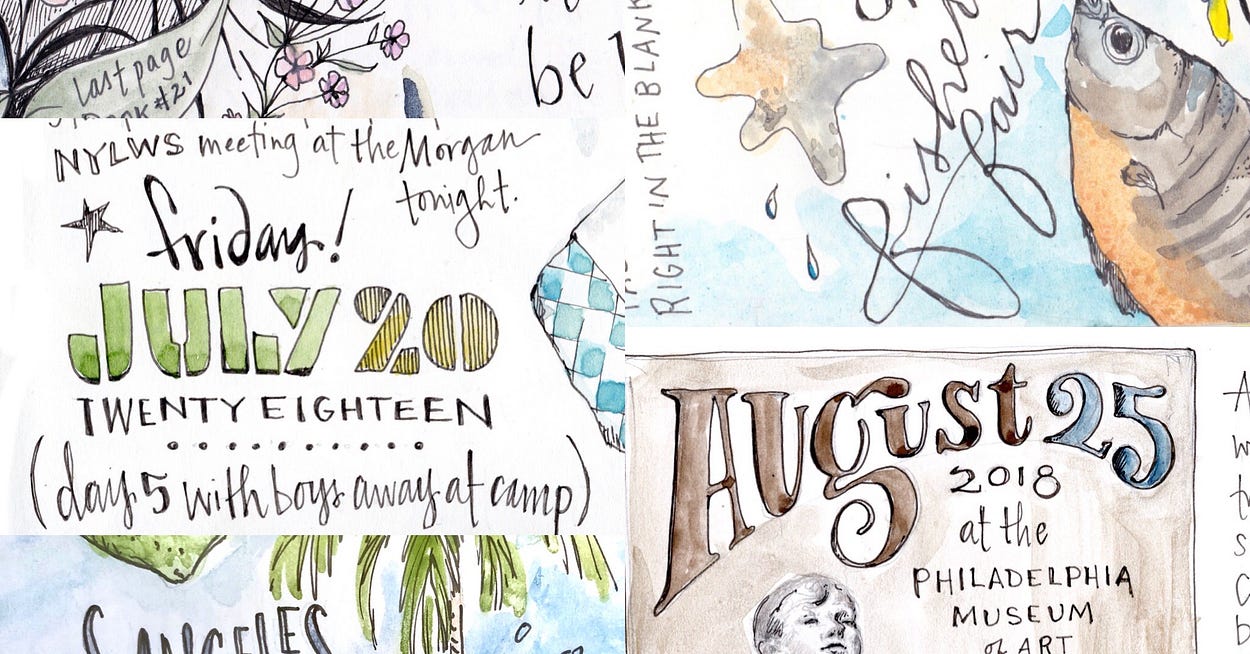 last page
#21
be
NYLWS meeting at the Morgan
tonight.
friday!
JULY 20
TWENTY EIGHTEEN
(day 5 with boys away at camp)
S ANGELES
RIGHT IN THE BLANK
fisher
fair
AUgust 25
2018
at the
PHILADELPHIA
MUSEUM
of ART